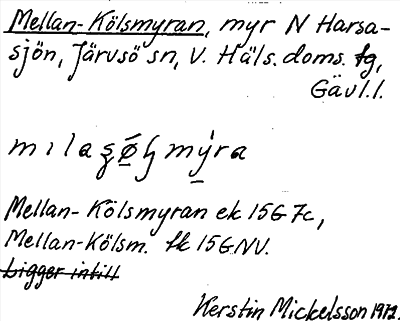 Mellan-Kölsmyran, myr N Harsa-
sjön, Järvsö sn, V. Häls. doms. fg,
Gävl.l.
Mellan-Kölsmyran ek 15G7c,
Mellan-Kölsm. fk 15GNV.
Ligger intill
Kerstin Mickelsson 1972.